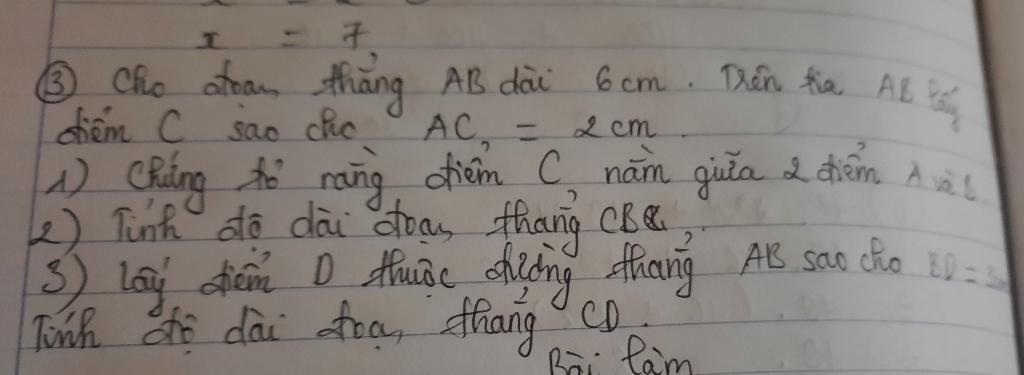 x = 7
③ Cho đoạn thẳng AB dài 6cm. Trên tia AB lấy
điểm C sao cho AC = 2cm.
1) Chứng tỏ rằng điểm C nằm giữa 2 điểm A và B.
2) Tính độ dài đoạn thẳng CB.
3) Lấy điểm D thuộc đường thẳng AB sao cho BD =
Tính độ dài đoạn thẳng CD.
Bài làm